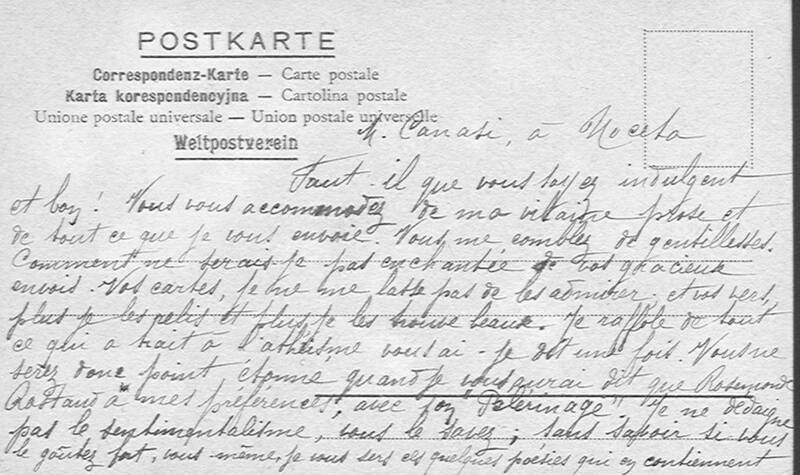 POSTKARTE
Correspondenz-Karte — Carte postale
Karta korespondencyjna — Cartolina postale
Unione postale universale — Union postale universelle
Weltpostverein
M. Canasi, à Noceto
Faut-il que vous soyez indulgent
et bon! Vous vous accommodez de ma vilaine prose et
de tout ce que je vous envoie. Vous me comblez de gentillesses.
Comment ne serais-je pas enchantée de vos gracieux
envois. Vos cartes, je ne me lasse pas de les admirer, et vos vers,
plus je les relis et plus je les trouve beaux. Je raffole de tout
ce qui a trait à l'athéisme vous ai-je dit une fois. Vous ne
serez donc point étonné quand je vous aurai dit que Rosemonde
Rostand a mes préférences, avec son "Pélerinage". Je ne dédaigne
pas le sentimentalisme, vous le savez; sans savoir si vous
le goûtez fort, vous-même, je vous sers ces quelques poésies qui en contiennent